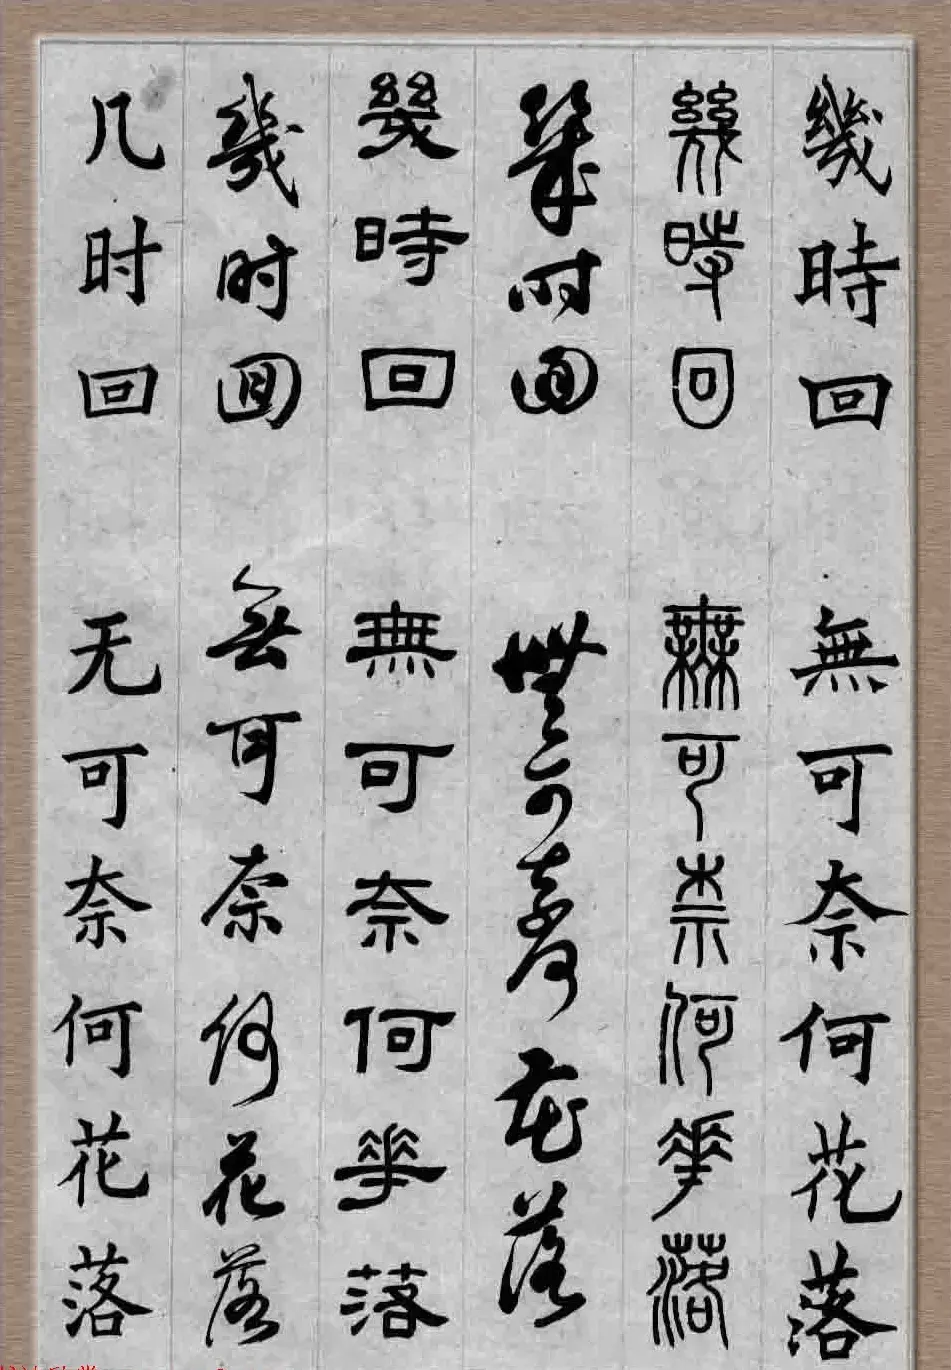 幾時回 無可奈何花落
幾時回 無可柰何華落
幾時回 無可奈何花落
幾時回 無可奈何華落
幾时回 無可奈何花落
几时回 无可奈何花落